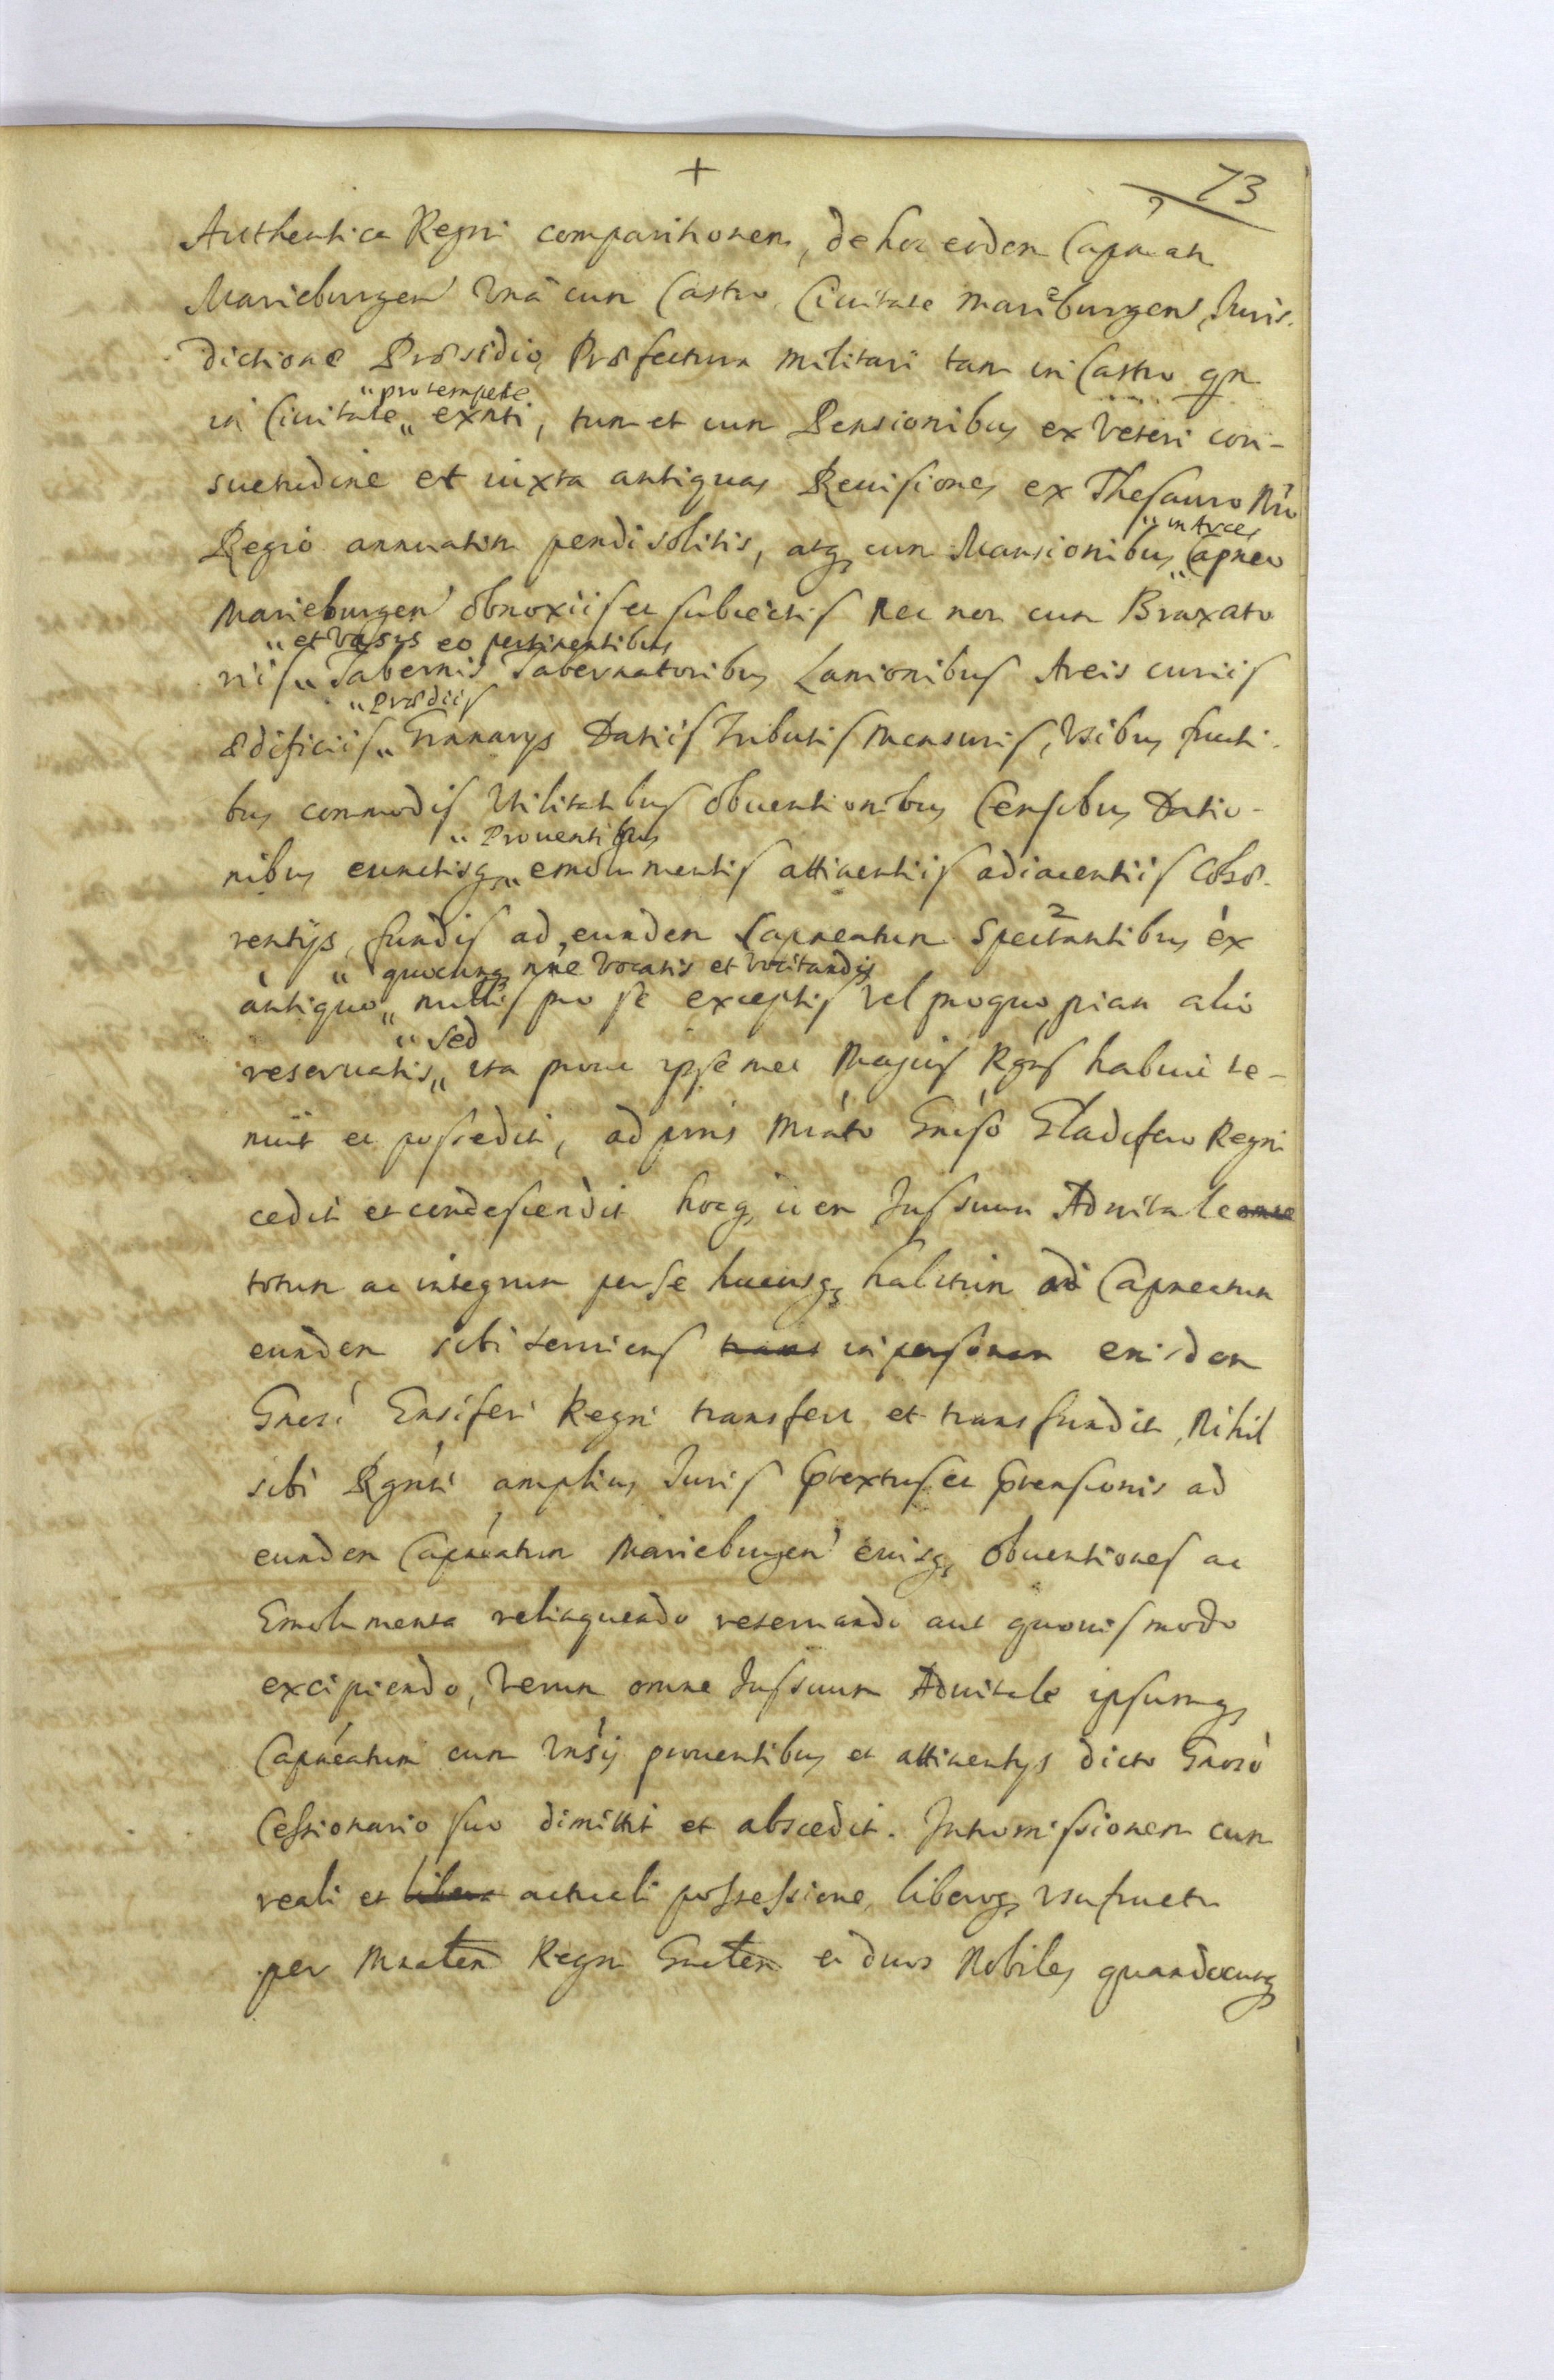 +
73
Authentica Regni comparitionem, de hoc eodem Capneatu
Marieburgen Una cum Castro Civitate Marieburgen, Juris-
dictione Præsidio Præfectura militari tam in Castro qm
"pro tempore
in Civitate " exnti, tum et cum Pensionibus ex veteri con-
suetudine et iuxta antiquas Revisiones ex Thesauro Nro
Regio annuatim pendi solitis, atq cum Mansionibus " Capneo
Marieburgen obnoxiis et subiectis nec non cum Braxato
" et vasys eo pertinentibus
riis " Tabernis Tabernatoribus Lanionibus Areis curiis
" prædiis
ædificiis " Granarys Datiis Tributis Mensuris, Usibus fructi-
bus commodis Utilitatibus obventionibus Censibus Datio-
" Proventibus
nibus cunctisq " emolumentis attinentiis adiacentiis Cohæ-
rentijs, fundis ad eundem Capneatum spectantibus ex
" quocunq nne vocatis et vocitandis
antiquo " nullis pro se exceptis vel pro quopiam alio
" sed
reservatis " ita prout ipsemet Magcus Rgns habuit te-
nuit et possedit, ad prns Mrato Gnoso Gladifero Regni
cedit et condescendit hocq item Jus suum Advitale
totum ac integrum per se hucusq habitum ad Capneatum
eundem sibi serviens in personam eiusdem
Gnosi Ensiferi Regni transfert et transfundit, Nihil
sibi Rgnti amplius Juris prætextus et prætensionis ad
eundem Capneatum Marieburgen eiusq obventiones ac
Emolumenta relinquendo reservando aut quovis modo
excipiendo, verum omne Jus suum Advitale ipsumq
Capneatum cum Unsis proventibus et attinentys dicto Gnoso
Cessionario suo dimittit et abscedit. Intromissionem cum
reali et actuali possessione, liberoq usufructu
per Mnrlem Regni Gnrlem et duos Nobiles quandocunq